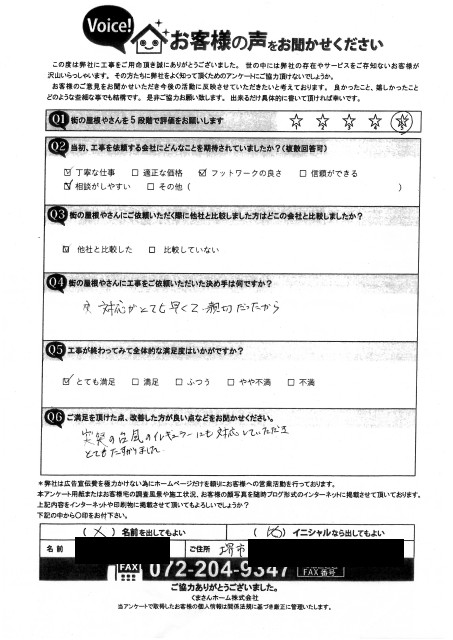 Voice!
お客様の声をお聞かせください
この度は弊社に工事をご用命頂き誠にありがとうございました。世の中には弊社の存在やサービスをご存知ないお客様が
沢山いらっしゃいます。その方たちに弊社をよく知って頂くためのアンケートにご協力頂けないでしょうか。
お客様のご意見をお聞かせいただき今後の活動に反映させていただきたいと考えております。良かったこと、嬉しかったこと
どのような些細な事でも結構です。是非ご協力お願い致します。出来るだけ具体的に書いて頂ければ幸いです。
Q1 街の屋根やさんを5段階で評価をお願いします
Q2 当初、工事を依頼する会社にどんなことを期待されていましたか?(複数回答可)
☑ 丁寧な仕事 □ 適正な価格 ☑ フットワークの良さ □ 信頼ができる
☑ 相談がしやすい □ その他( )
Q3 街の屋根やさんにご依頼いただく際に他社と比較しました方はどこの会社と比較しましたか?
☑ 他社と比較した □ 比較していない
Q4 街の屋根やさんに工事をご依頼いただいた決め手は何ですか?
対応がとても早くて親切だったから
Q5 工事が終わってみて全体的な満足度はいかがですか?
☑ とても満足 □ 満足 □ ふつう □ やや不満 □ 不満
Q6 ご満足を頂けた点、改善した方が良い点などをお聞かせください。
突然の台風のイレギュラーにも対応していただき
とてもたすかりました
＊弊社は広告宣伝費を極力かけない為にホームページだけを頼りにお客様への営業活動を行っております。
本アンケート用紙またはお客様宅の調査風景や施工状況、お客様の顔写真を随時ブログ形式のインターネットに掲載させて頂いております。
上記内容をインターネットや印刷物に掲載させて頂いてもよろしいでしょうか?
下記の中から〇印をお付下さい。
( × ) 名前を出してもよい ( ) イニシャルなら出してもよい
名前 ご住所 堺市
FAX 072-204-9347 FAX番号
ご協力ありがとうございました。
くまさんホーム株式会社
当アンケートで取得したお客様の個人情報は関係法規に基づき厳正に管理いたします。